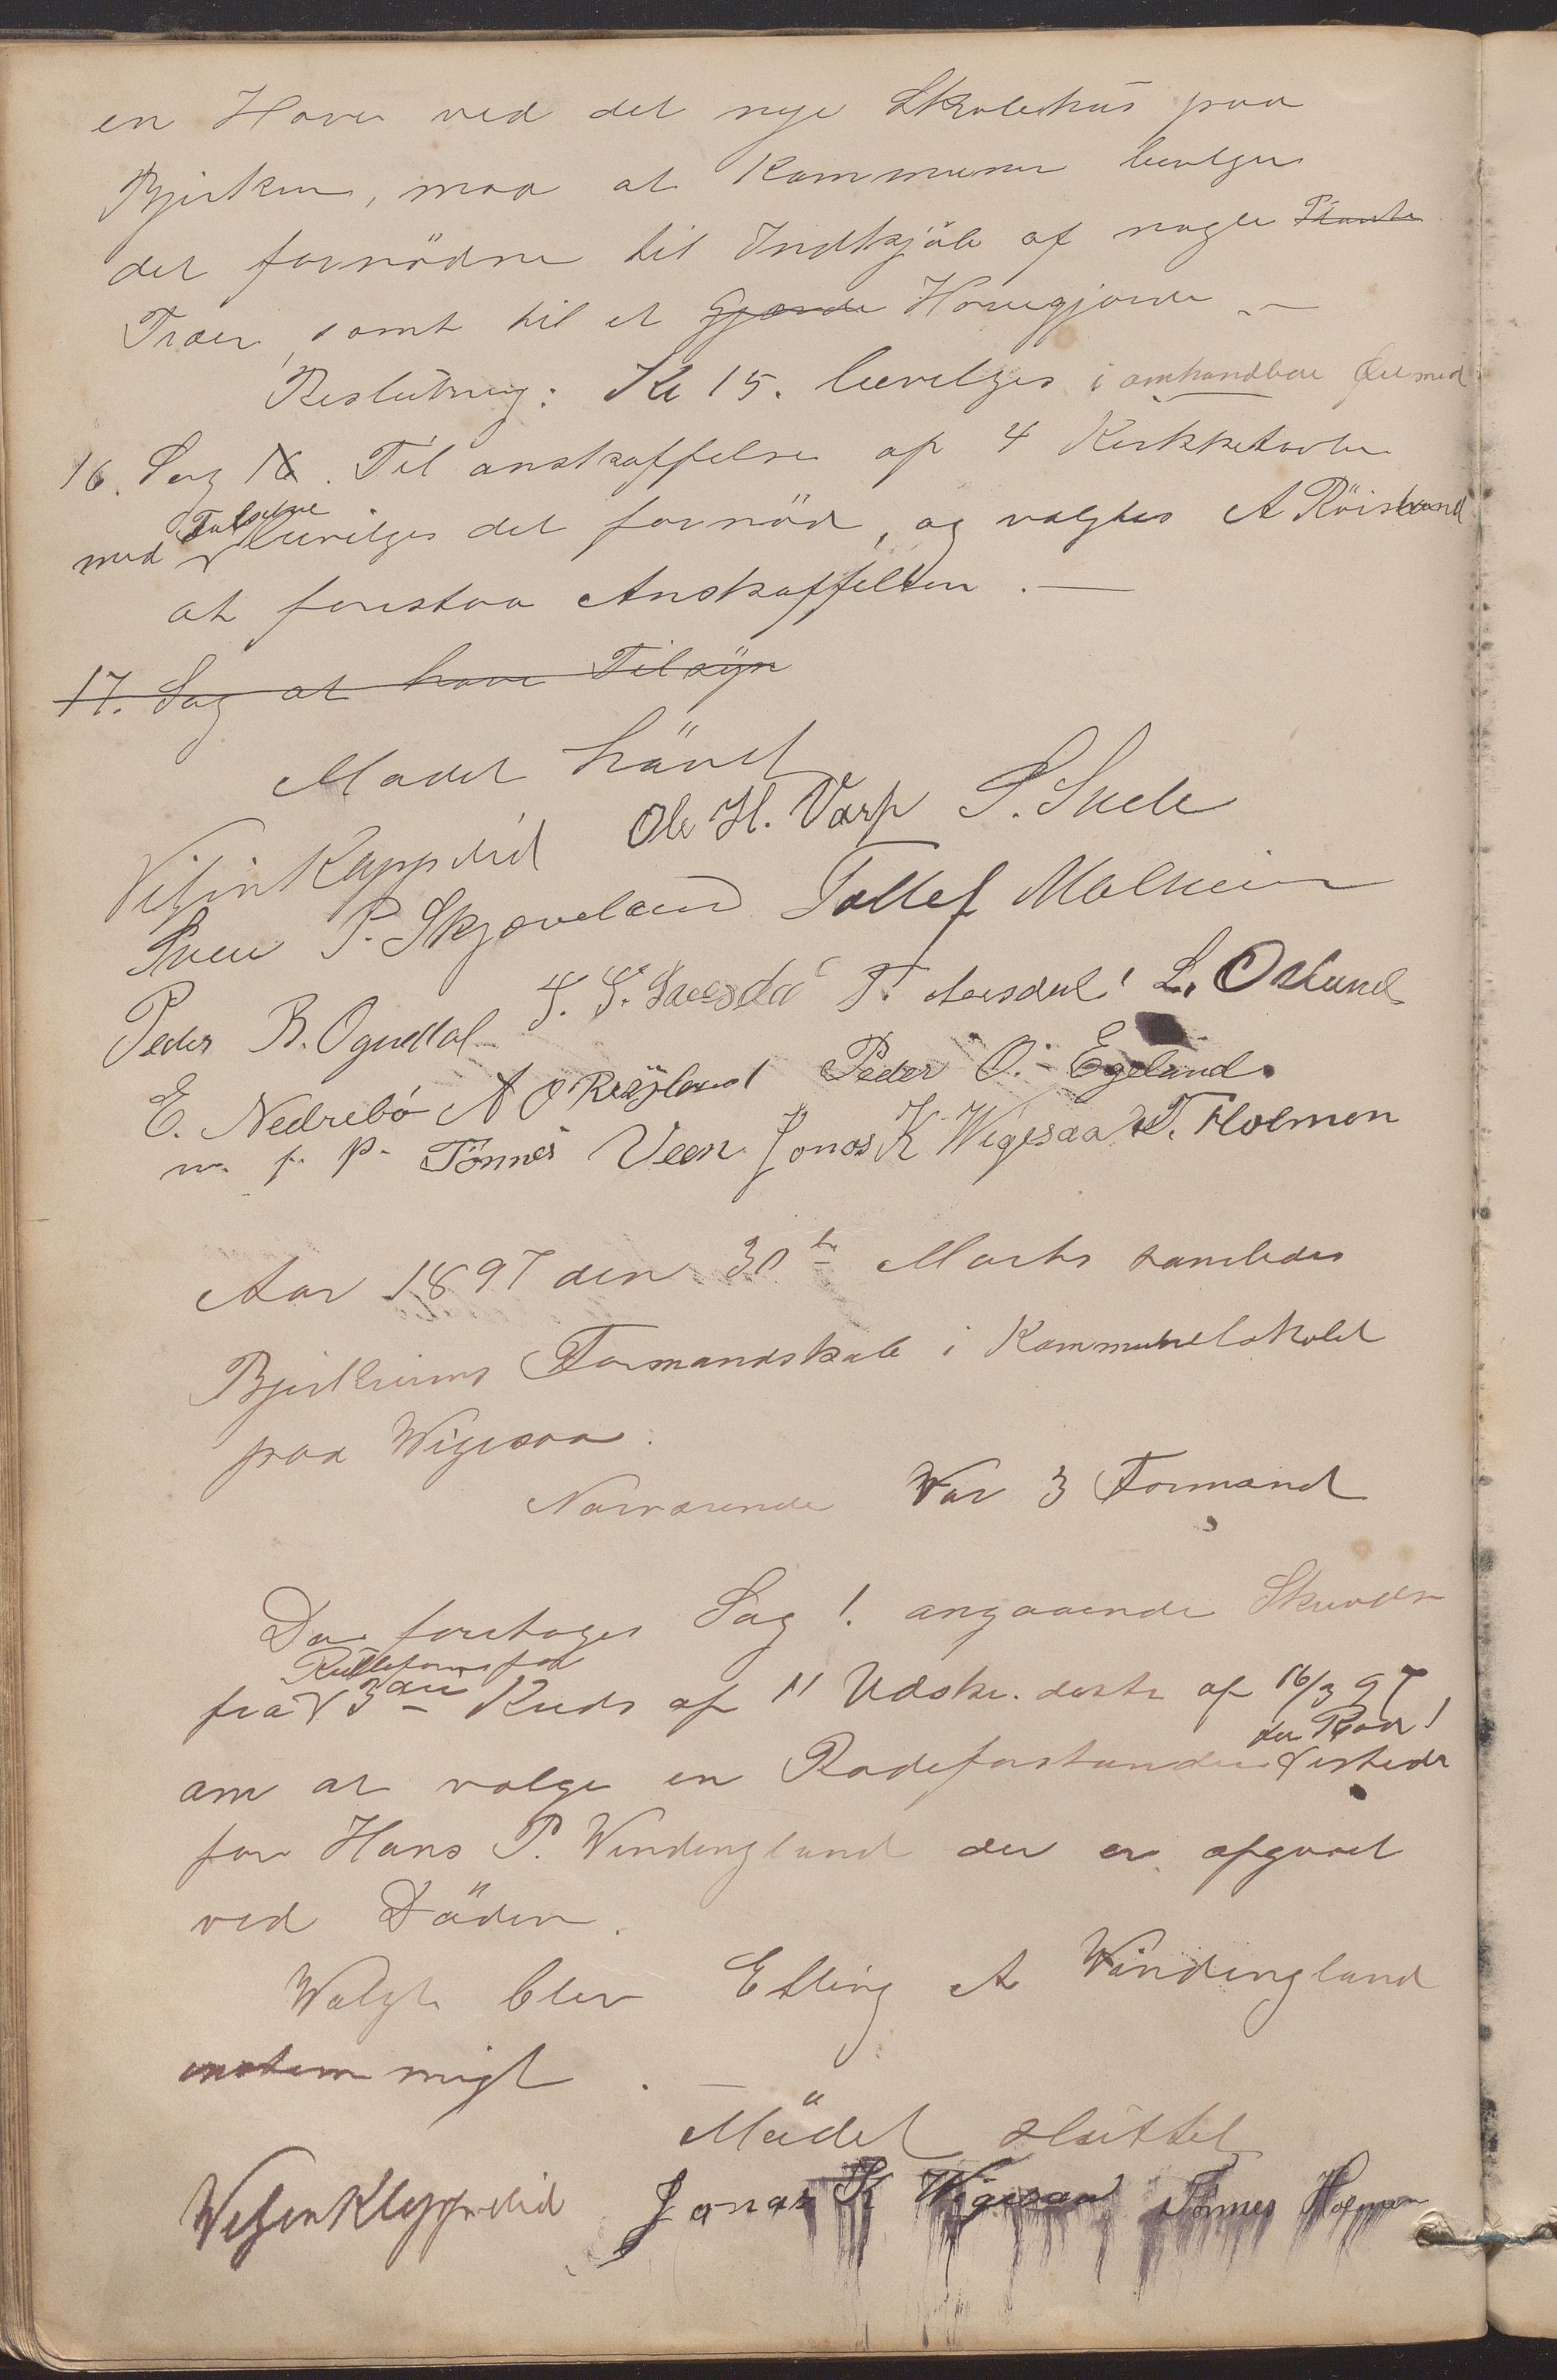 en Have ved det nye Skolehus paa
Bjerkrem, mod at Kommunen bevilger
det fornödne til Indkjöb af nogle Plante
Træer, samt til et Gjærde Havegjærde. —
Beslutning: Kr 15. bevilges i omhandlede
16. Sag 16. Til anskaffelse af 4 Kirketavler
med Tallene bevilges det fornöd, og valgtes A Röisland
at forestaa Anskaffelsen. —
17. Sag at have Tilsyn
Mödet hævet
Vitjin Kloppelid Ole H. Varp S. Svele
Sven P. Skjæveland Tollef Malmein
Peder B. Ognedal T. Aarsdal L. Osland
E. Nedrebö A O Röysland Peder O. Egeland.
m. f. P. Tönnes Veen Jonas K Wigesaa T. Holmen
Aar 1897 den 30te Marts samledes
Bjerkreims Formandskab i Kommunelokalet
paa Wigesaa.
Nærværende Var 3 Formænd
Da foretoges Sag 1. angaaende Skrivelse
fra Rulleføreren for 3die Kreds af 11 Udskr. distr af 16/3 97,
om at vælge en Rodeforstander i den Rode! isteden
for Hans P. Vindingland der er afgaaet
ved Döden.
Valgte blev Elling A Vindingland
enstemmigt. —
Mödet sluttet
Vitjin Kloppelid Jonas K Wigesaa Tönnes Holmen